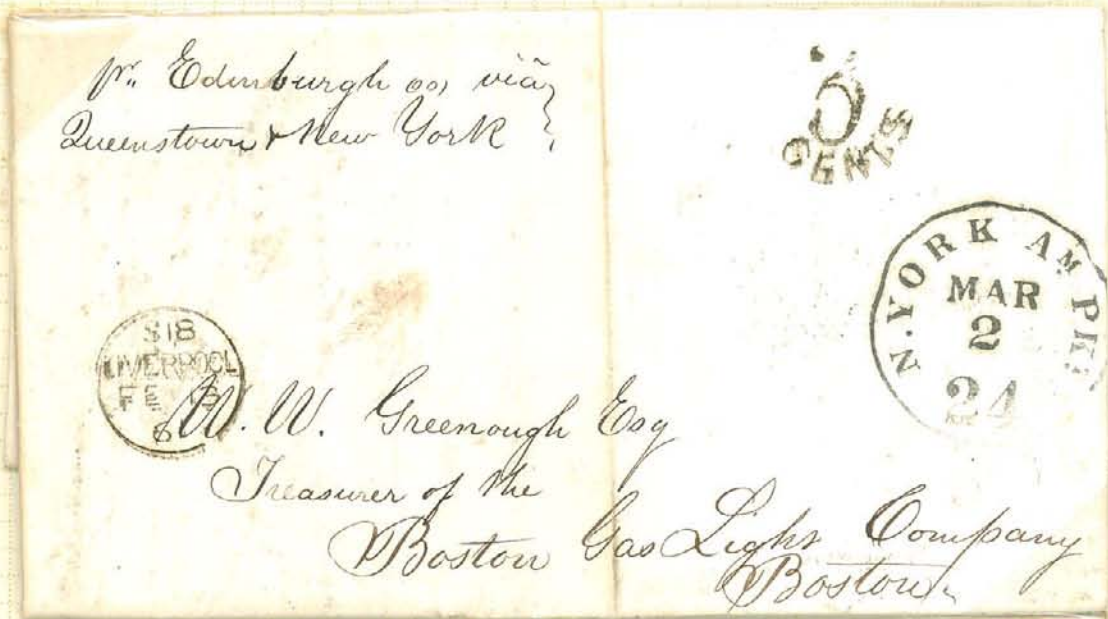 pr. Edinburgh ss via
Queenstown & New York
3
CENTS
N. YORK AM PKT
MAR
2
24
S18
LIVERPOOL
FE
W. W. Greenough Esq
Treasurer of the
Boston Gas Light Company
Boston